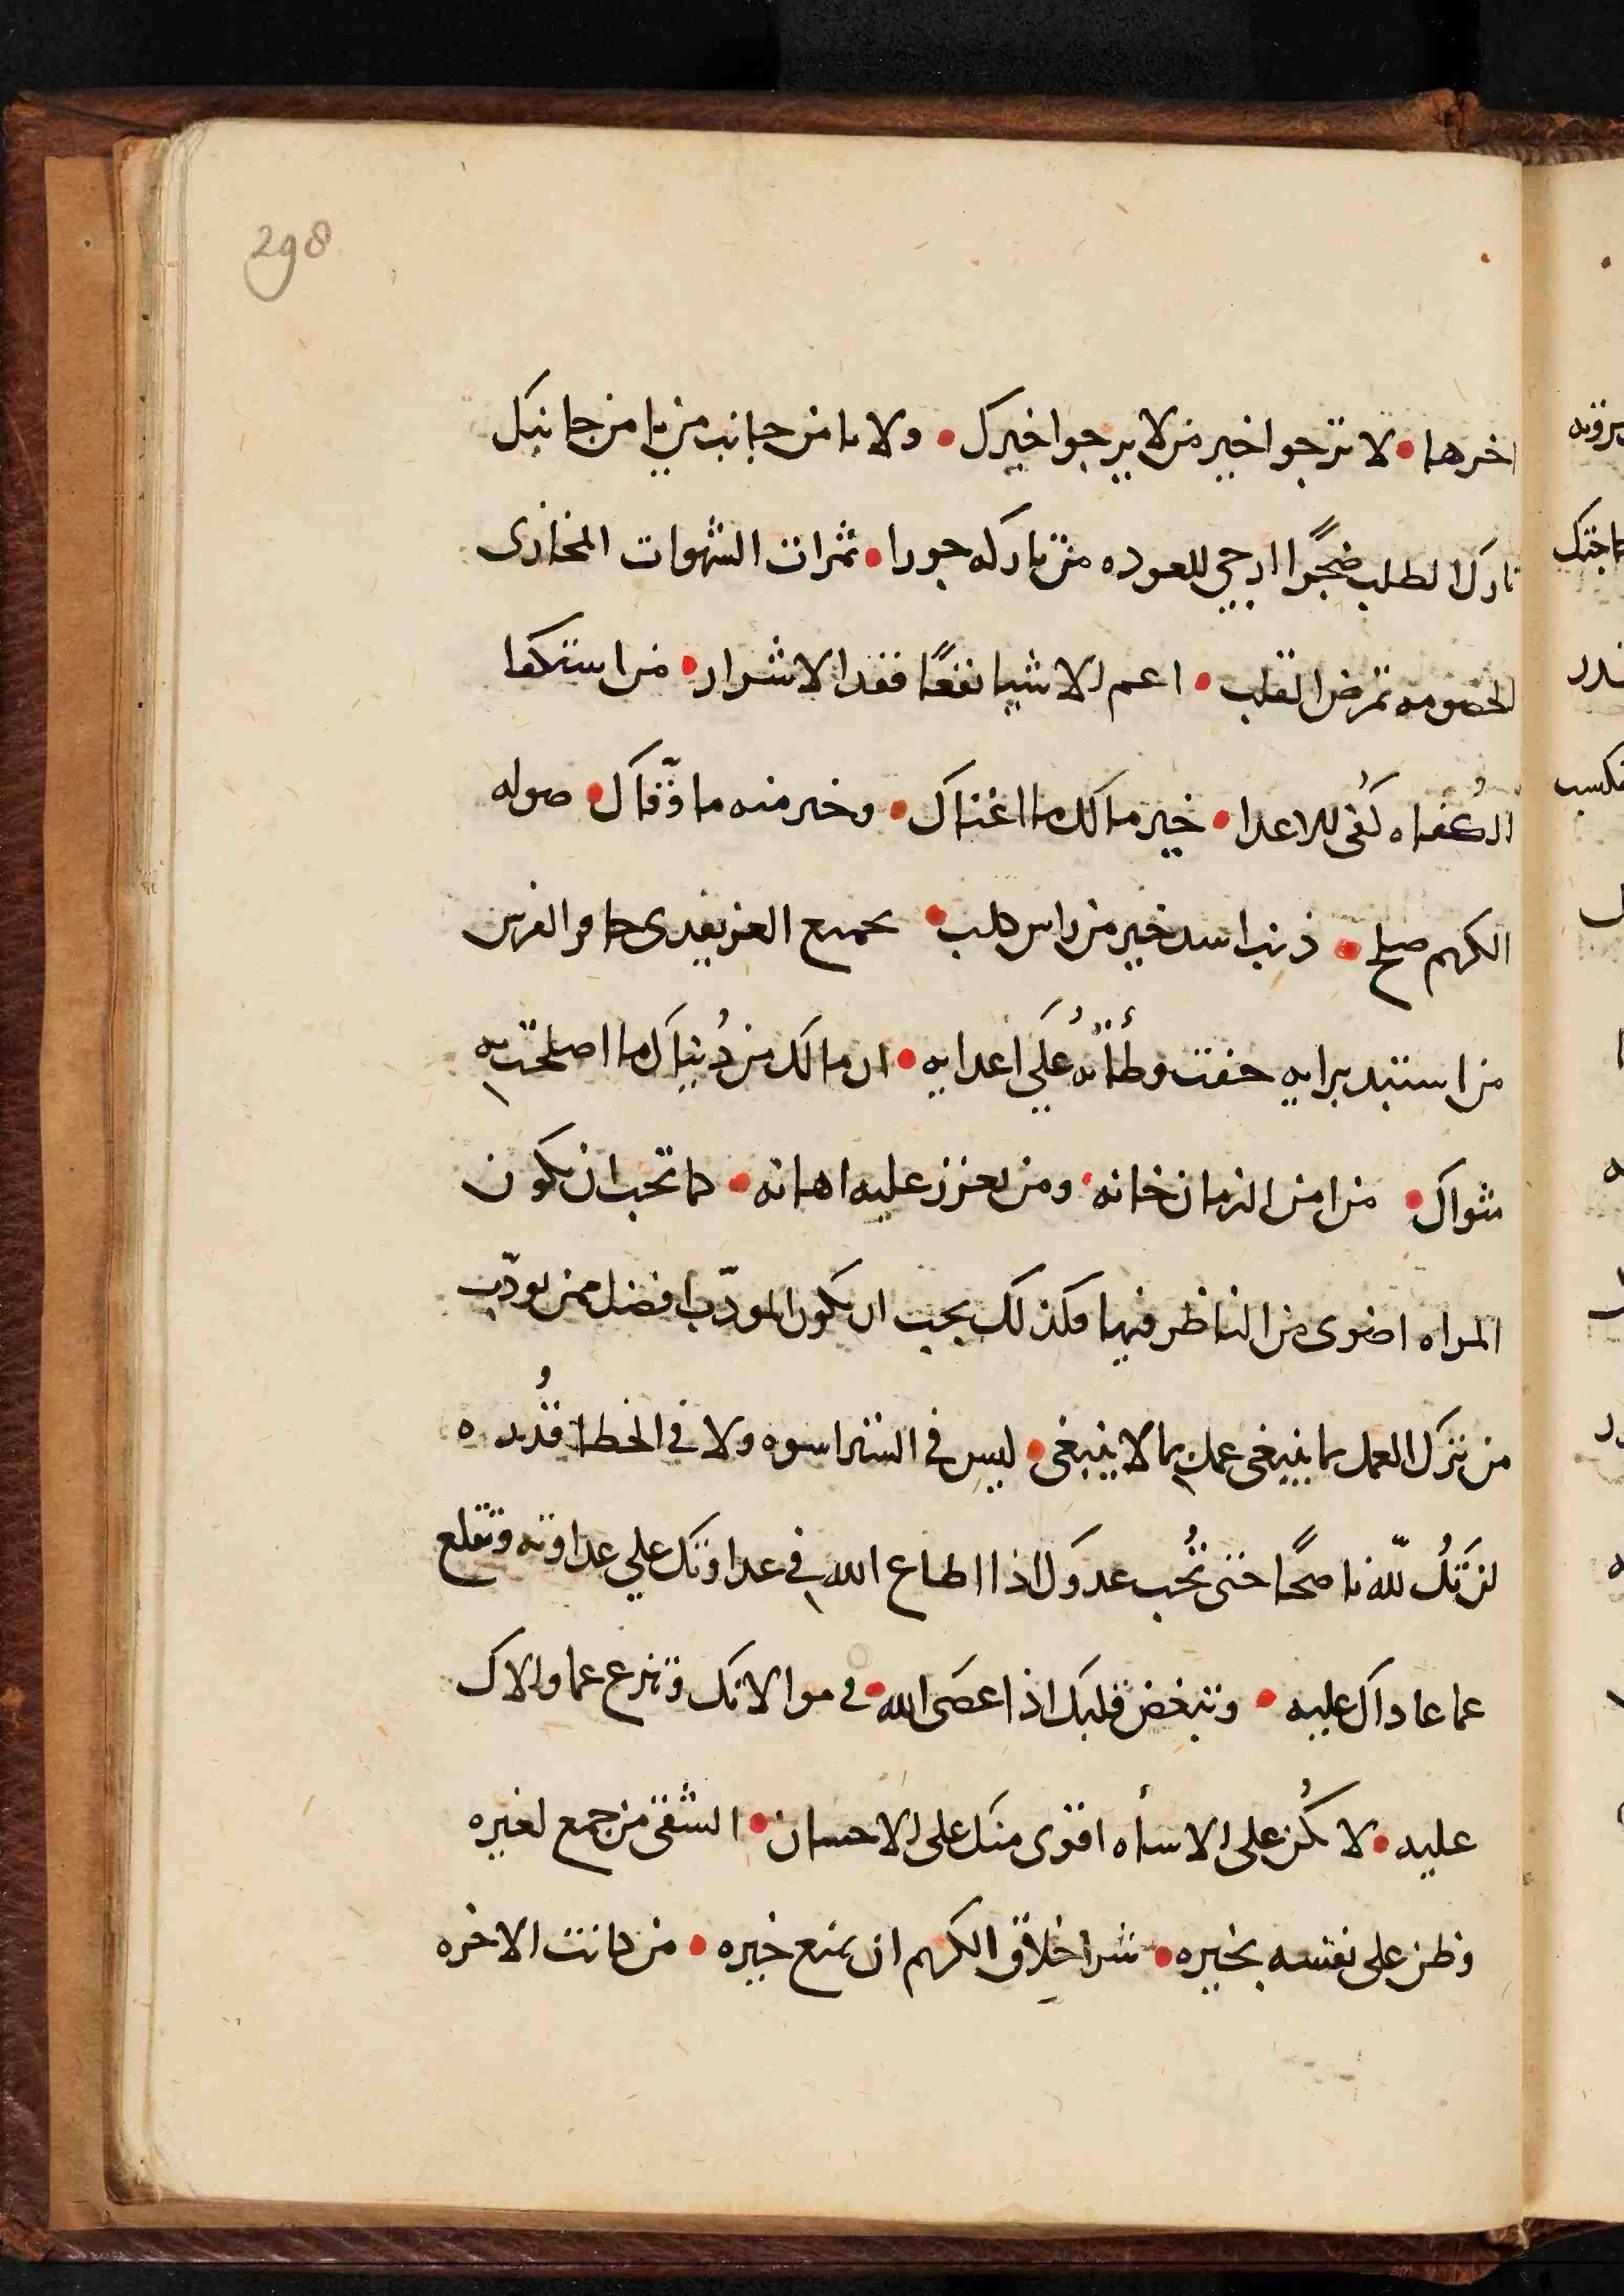 298
اخرها • لا ترجوا خير من لا يرجوا خيرك • ولا تامن جانب من يامن جانبك
تارك الطلب ضجرًا ارجي للعوده من تاركه جورا • ثمرات الشهوات المخازى
الخصومه تمرض القلب • اعم الاشيا نفعًا فقد الاشرار • من استكفا
الكفاه كُفى للاعدا • خير مالك ما اغناك • وخير منه ما وقّاك • صوله
الكريم صلح • ذنب اسد خير من راس كلب • بحميع العز يفدى حافر الفرس
من استبد برايه خفت وطأته علي اعدايه • ان مالك من دُنياك ما اصلحت به
مثواك • من امن الزمان خانه • ومن تعزز عليه اهانه • كما تحب ان تكون
المراه اضوى من الناظر فيها فكذلك يجب ان يكون المودّب افضل ممن يودّب
من ترك العمل بما ينبغى عمل بما لا ينبغى • ليس فى الشر اسوه ولا فى الخطا قُدره
لن تكُ للّه ناصحًا حتى تُحب عدوَك اذا اطاع الله فى عداوتك علي عداوته وتقلع
عما عاداك عليه • وتبغض قلبك اذا عصَى الله • فى موالاتك وتنزع عما والاك
عليه • لا تكُن على الاسأه اقوى منك على الاحسان • الشقى من جمع لغيره
وظن على نفسه بخيره • شر اخلاق الكريم ان يمنع خيره • من كانت الاخره